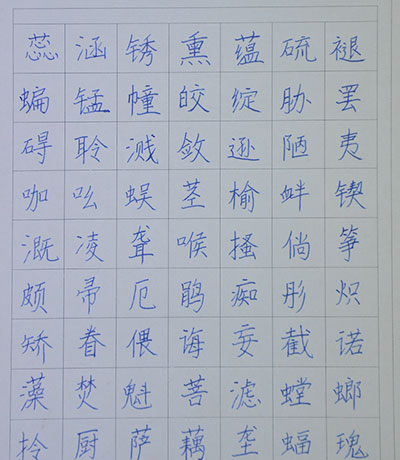 蕊涵锈熏蕴硫褪
蝙锰幢皎绽胁罢
碍聆溅敛逊陋夷
咖吆蜈茎榆衅锲
溉凌聋喉搔倘筝
颇帚厄鹃痴彤炽
矫眷偎诲妄截诺
藻焚魁菩滤螳螂
拎厨萨藕垄蝠瑰